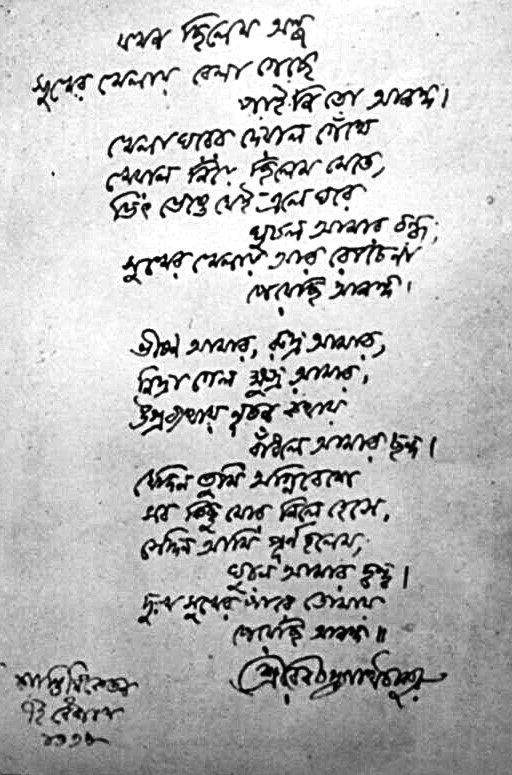 যখন ছিলেম অন্ধ
সুখের খেলায় বেলা গেছে
পাইনি তো আনন্দ।
খেলা ঘরের দেয়াল গেঁথে
খেয়াল নিয়ে ছিলেম মেতে,
ভিৎ ভেঙে যেই এলে ঘরে
ঘুচল আমার বন্ধ;
সুখের খেলায় আর রোচেনা
পেয়েছি আনন্দ।
ভীষণ আমার, রুদ্র আমার,
নিদ্রা গেল ক্ষুদ্র আমার,
উগ্রব্যথায় নূতন করে
বাঁধলে আমার ছন্দ।
যেদিন তুমি অগ্নিবেশে
সব কিছু মোর নিলে এসে,
সেদিন আমি পূর্ণ হলেম,
ঘুচল আমার দ্বন্দ্ব।
দুঃখ সুখের পারে তোমায়
পেয়েছি আনন্দ॥
শ্রীরবীন্দ্রনাথ ঠাকুর
শান্তিনিকেতন
বৈশাখ